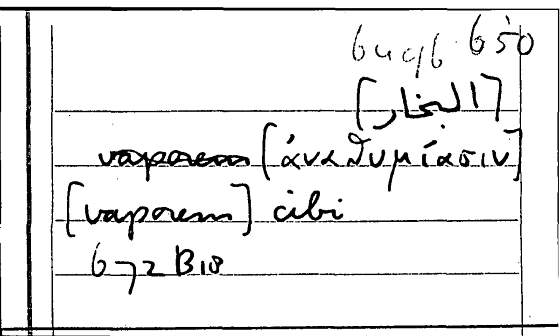 650
[البخار]
vaporem [ἀναθυμίασιν]
[vaporem] cibi
672 B18